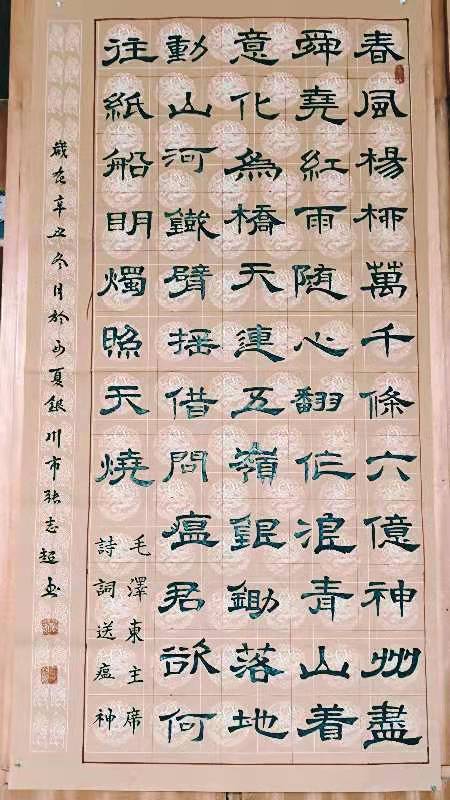 春風楊栁萬千條六億神州盡
舜堯紅雨随心翻作浪青山着
意化為橋天連五嶺銀鋤落地
動山河鐵臂摇借問瘟君欲何
往紙船明燭照天燒
毛澤東主席
詩詞送瘟神
歲在辛丑冬月於西夏銀川市張志超書